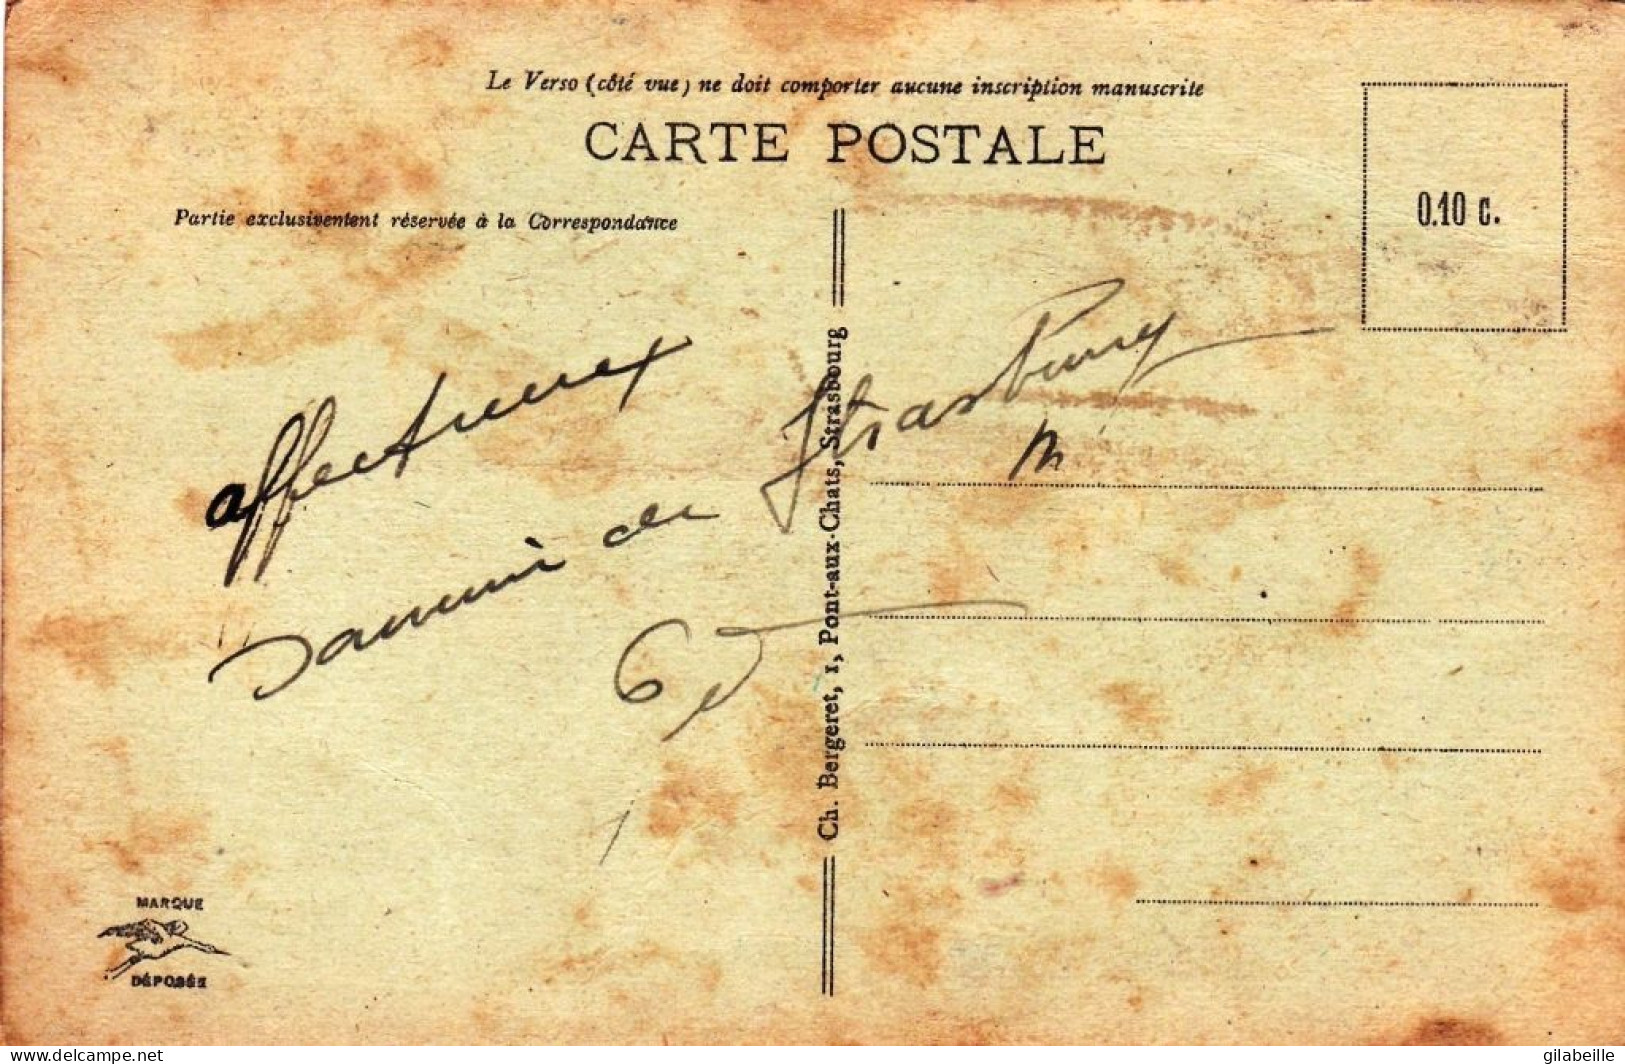 Le Verso (côté vue) ne doit comporter aucune inscription manuscrite
CARTE POSTALE
0.10 c.
Partie exclusivement réservée à la Correspondance
affectueux
de Strasbourg
Ch. Bergeret, 1, Pont-aux-Chats, Strasbourg
M
MARQUE
DÉPOSÉE
https://www.delcampe.net
gilabeille